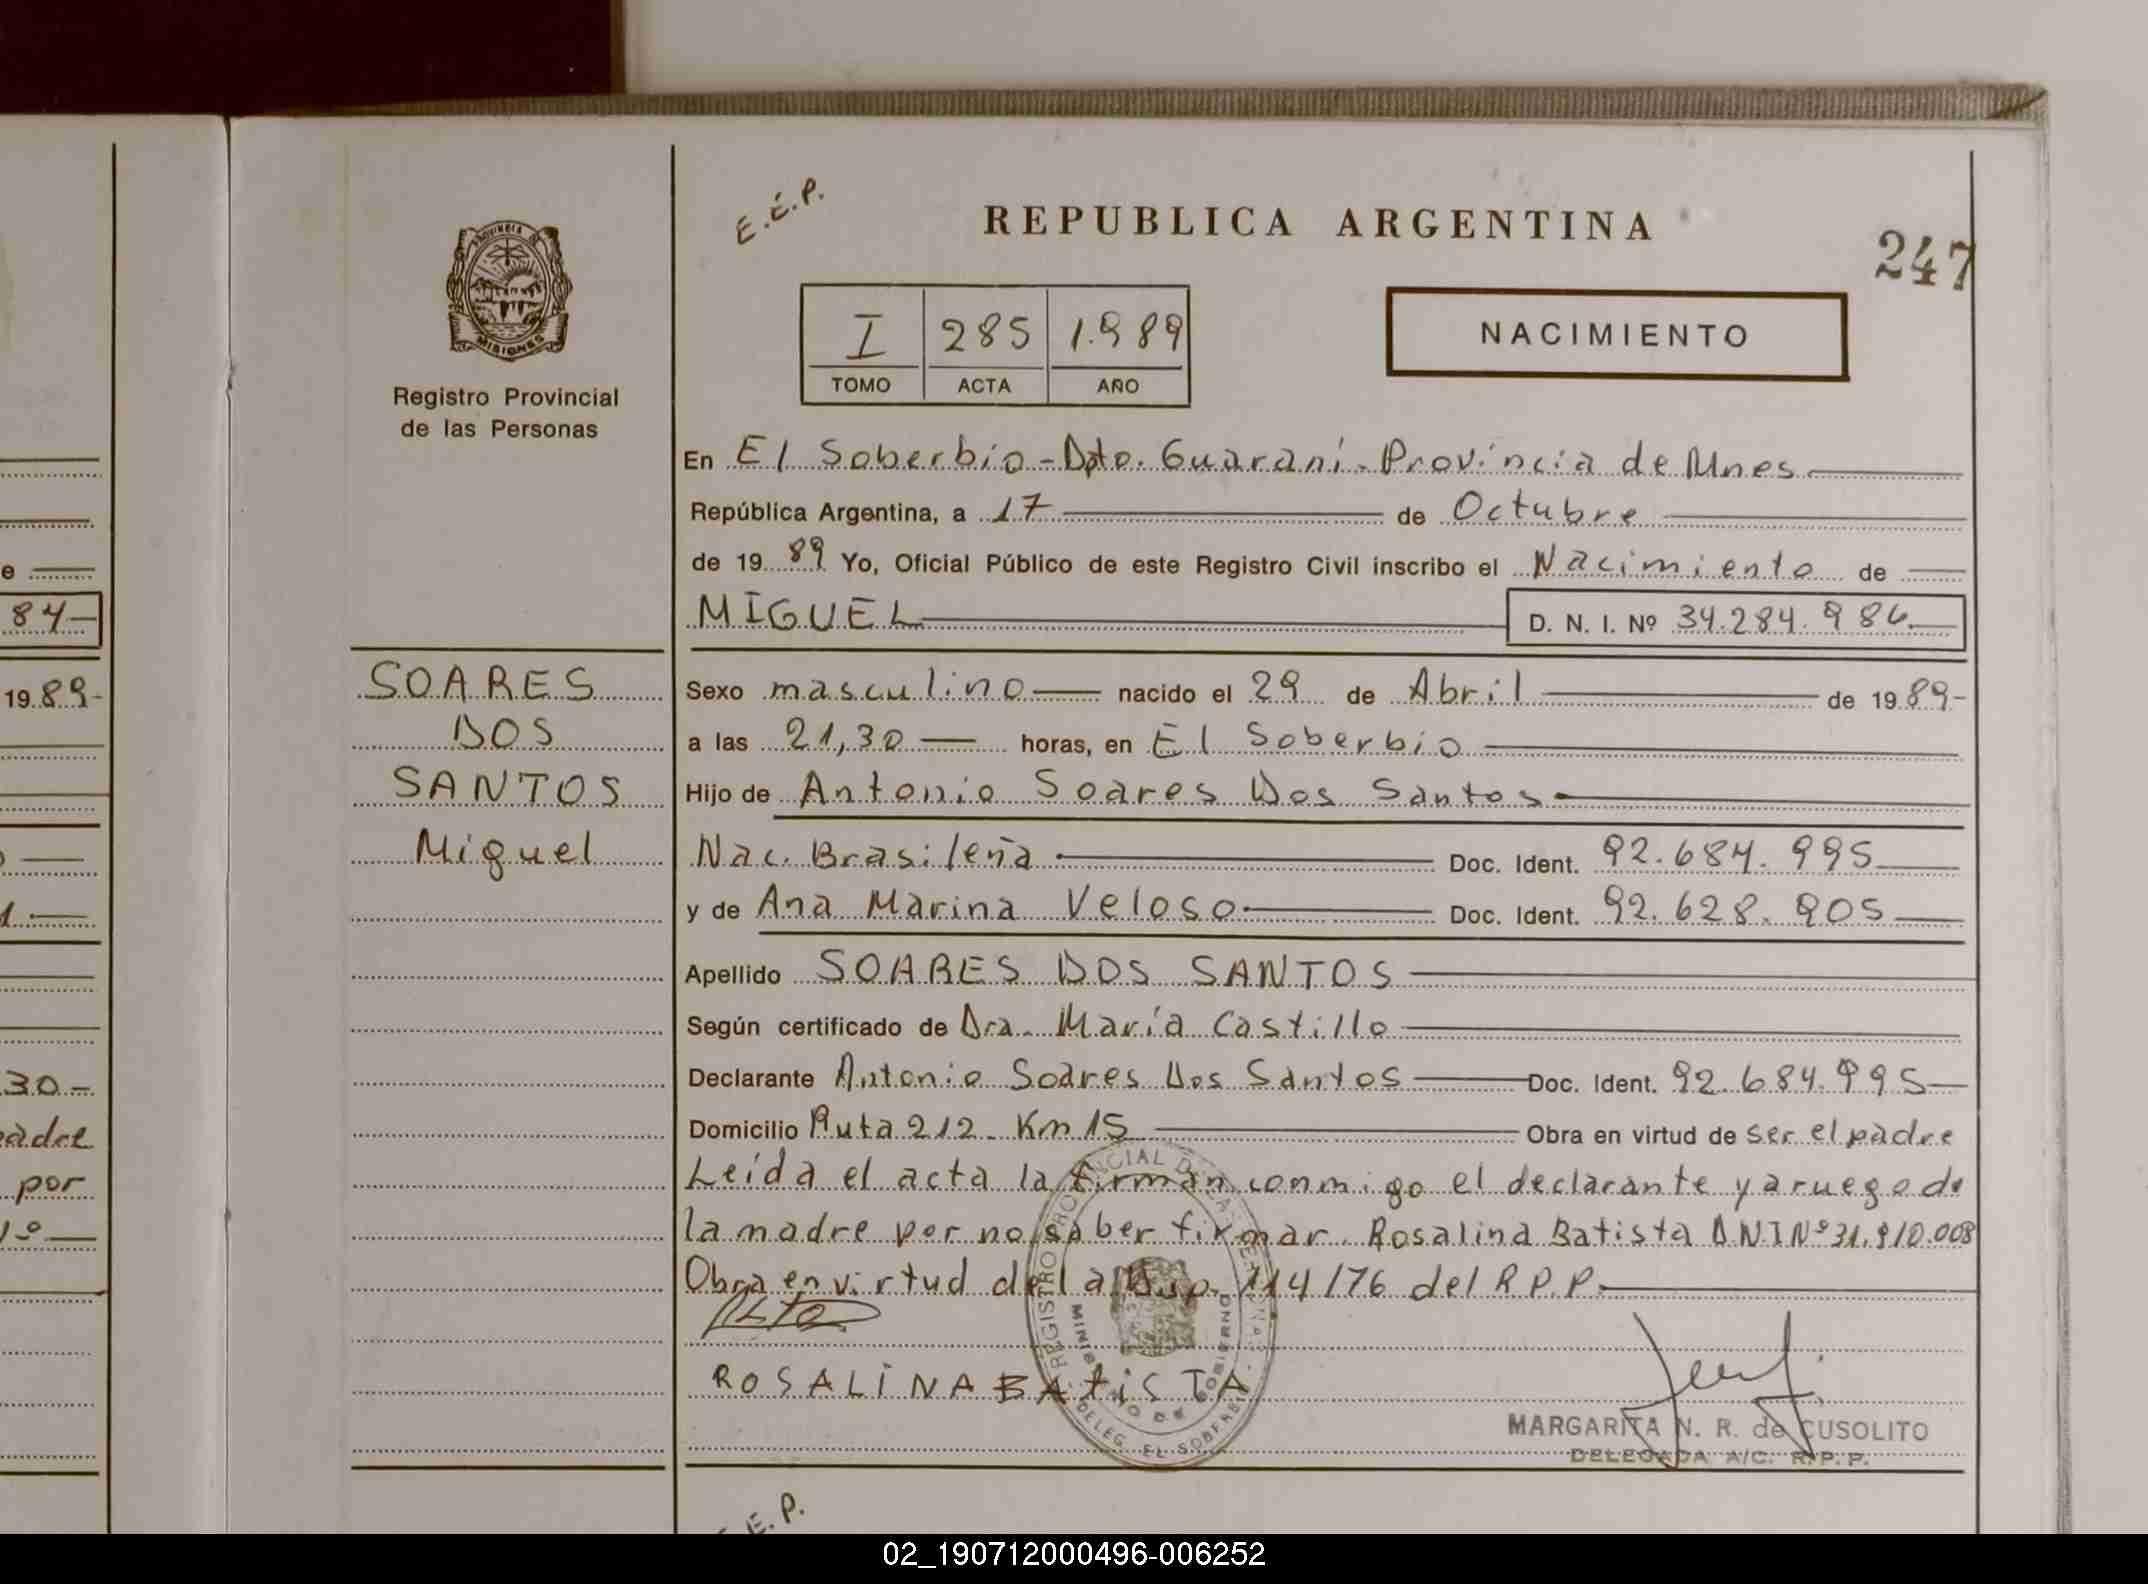 E.E.P.
REPUBLICA ARGENTINA
247
PROVINCIA DE
MISIONES
Registro Provincial
de las Personas
I 285 1.989
TOMO ACTA AÑO
NACIMIENTO
En El Soberbio - Dpto. Guaraní - Provincia de Mnes
República Argentina, a 17 de Octubre
de 1989 Yo, Oficial Público de este Registro Civil inscribo el Nacimiento de
MIGUEL D. N. I. Nº 34.284.986
SOARES
DOS
SANTOS
Miguel
Sexo masculino nacido el 29 de Abril de 1989-
a las 21,30 horas, en El Soberbio
Hijo de Antonio Soares Dos Santos
Nac. Brasileña Doc. Ident. 92.684.995
y de Ana Marina Veloso Doc. Ident. 92.628.905
Apellido SOARES DOS SANTOS
Según certificado de Dra. María Castillo
Declarante Antonio Soares Dos Santos Doc. Ident. 92.684.995
Domicilio Ruta 212 - Km 15 Obra en virtud de ser el padre
Leída el acta la firman conmigo el declarante y a ruego de
la madre por no saber firmar. Rosalina Batista DNI Nº 31.910.008
Obra en virtud de la Disp. 114/76 del R.P.P.
ROSALINA BATISTA
MINISTERIO DE GOBIERNO
DELEG. EL SOBERBIO
MARGARITA N. R. de CUSOLITO
DELEGADA A/C. R.P.P.
E.P.
e
84
1989-
30.-
padre
por
1º
02_190712000496-006252